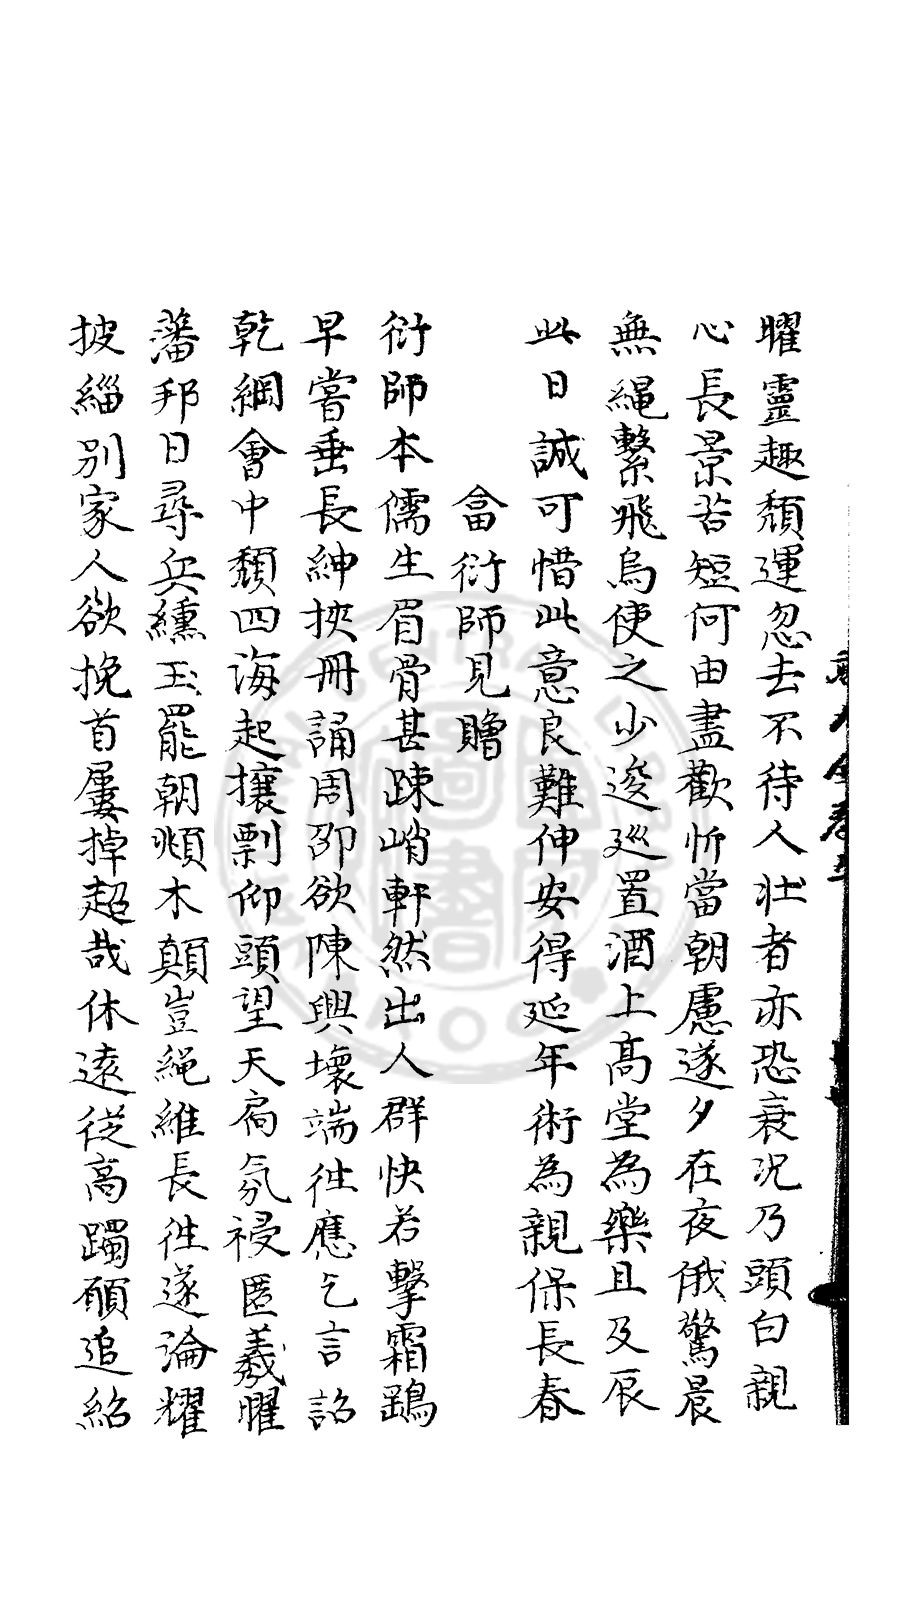 曜靈趣頹運忽去不待人壯者亦恐衰况乃頭白親
心長景苦短何由盡歡忻當朝慮遂夕在夜俄驚晨
無繩繫飛烏使之少逡巡置酒上高堂為樂且及辰
此日誠可惜此意良難伸安得延年術為親保長春
畣衍師見贈
衍師本儒生眉骨甚踈峭軒然出人群快若擊霜鷂
早嘗垂長紳挾冊誦周邵欲陳興壞端徃應乞言詔
乾綱會中頹四海起攘剽仰頭望天扃氛祲匿羲曜
藩邦日尋兵纁玉罷朝頫木顛豈繩維長徃遂淪耀
披緇別家人欲挽首屢掉超哉休遠從高躅願追紹